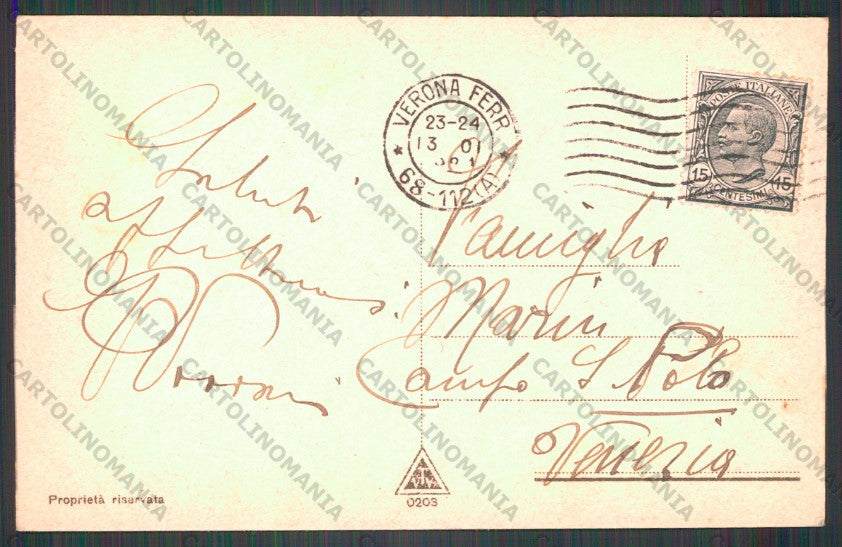 VERONA FERR.
23-24
13 01
68-112 (A)
POSTE ITALIANE
15 CENTESIMI 15
Saluti
affettuosi
Famiglia
Marin
Campo S. Polo
Venezia
Proprietà riservata
0203
CARTOLINOMANIA